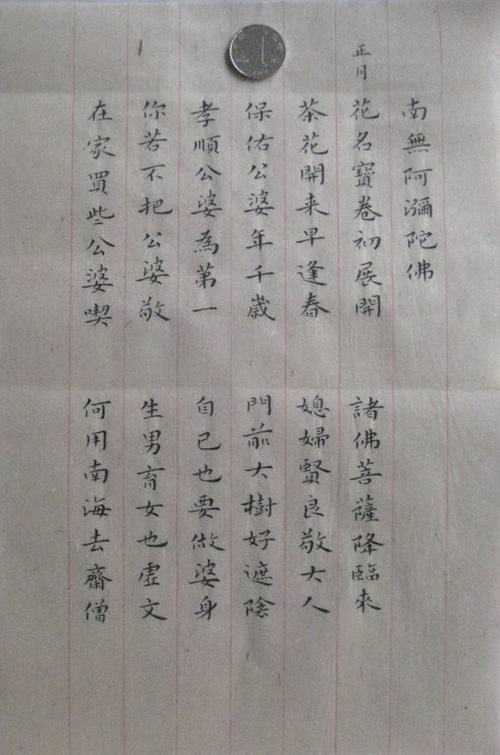 南無阿彌陀佛
正月
花名寶卷初展開 諸佛菩薩降臨來
茶花開来早逢春 媳婦賢良敬大人
保佑公婆年千歲 門前大樹好遮陰
孝順公婆為第一 自己也要做婆身
你若不把公婆敬 生男育女也虛文
在家買些公婆喫 何用南海去齋僧